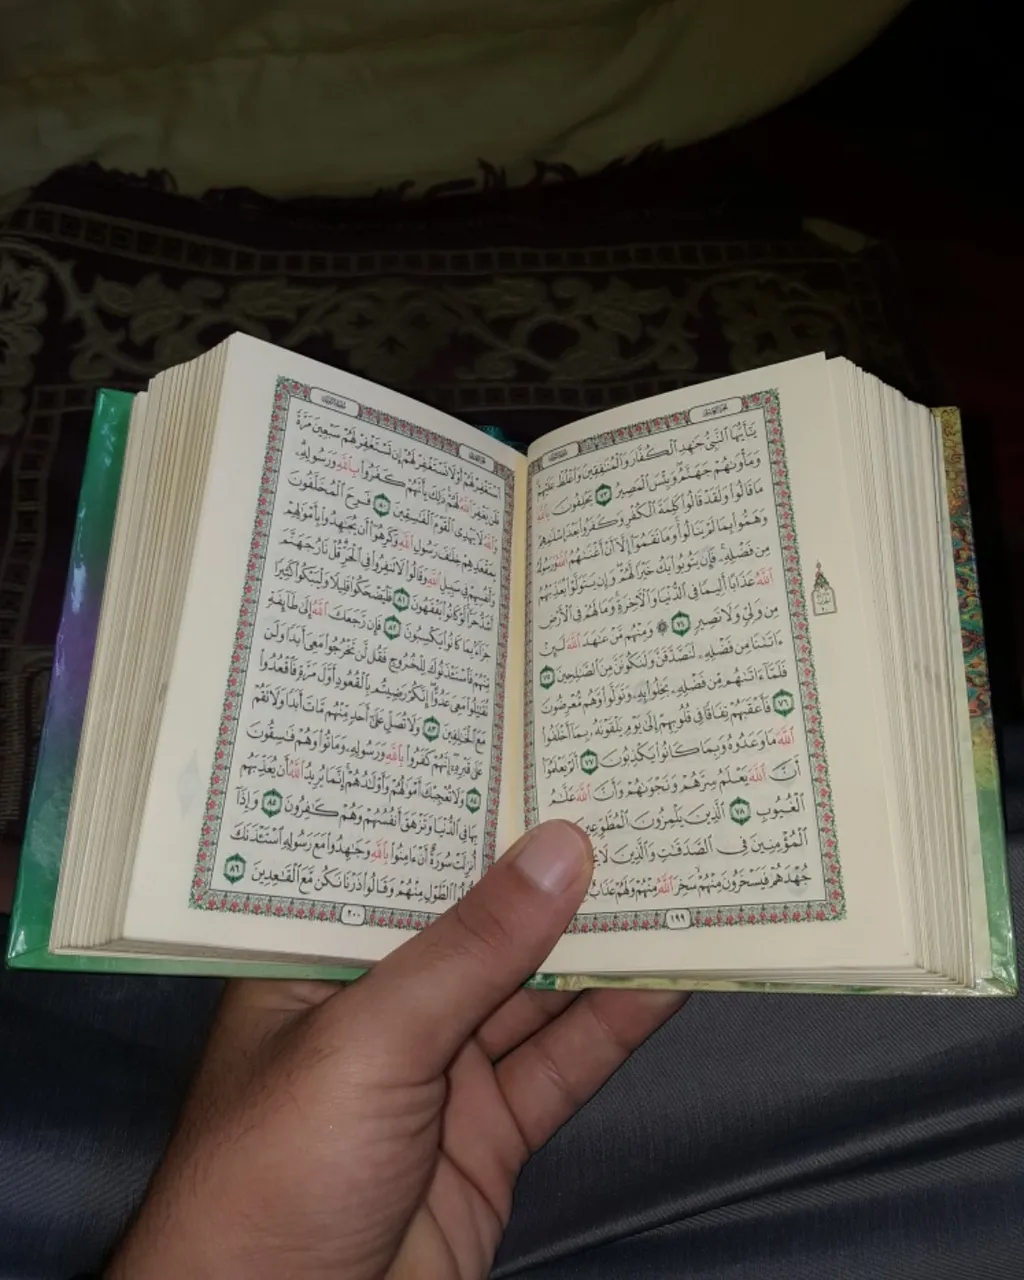 يَٰٓأَيُّهَا ٱلنَّبِيُّ جَٰهِدِ ٱلۡكُفَّارَ وَٱلۡمُنَٰفِقِينَ وَٱغۡلُظۡ عَلَيۡهِمۡۚ
وَمَأۡوَىٰهُمۡ جَهَنَّمُۖ وَبِئۡسَ ٱلۡمَصِيرُ ٧٣ يَحۡلِفُونَ بِٱللَّهِ
مَا قَالُواْ وَلَقَدۡ قَالُواْ كَلِمَةَ ٱلۡكُفۡرِ وَكَفَرُواْ بَعۡدَ إِسۡلَٰمِهِمۡ
وَهَمُّواْ بِمَا لَمۡ يَنَالُواْۚ وَمَا نَقَمُوٓاْ إِلَّآ أَنۡ أَغۡنَىٰهُمُ ٱللَّهُ وَرَسُولُهُۥ
مِن فَضۡلِهِۦۚ فَإِن يَتُوبُواْ يَكُ خَيۡرٗا لَّهُمۡۖ وَإِن يَتَوَلَّوۡاْ يُعَذِّبۡهُمُ
ٱللَّهُ عَذَابًا أَلِيمٗا فِي ٱلدُّنۡيَا وَٱلۡأٓخِرَةِۚ وَمَا لَهُمۡ فِي ٱلۡأَرۡضِ
مِن وَلِيّٖ وَلَا نَصِيرٖ ٧٤ ۞ وَمِنۡهُم مَّنۡ عَٰهَدَ ٱللَّهَ لَئِنۡ
ءَاتَىٰنَا مِن فَضۡلِهِۦ لَنَصَّدَّقَنَّ وَلَنَكُونَنَّ مِنَ ٱلصَّٰلِحِينَ ٧٥
فَلَمَّآ ءَاتَىٰهُم مِّن فَضۡلِهِۦ بَخِلُواْ بِهِۦ وَتَوَلَّواْ وَّهُم مُّعۡرِضُونَ
٧٦ فَأَعۡقَبَهُمۡ نِفَاقٗا فِي قُلُوبِهِمۡ إِلَىٰ يَوۡمِ يَلۡقَوۡنَهُۥ بِمَآ أَخۡلَفُواْ
ٱللَّهَ مَا وَعَدُوهُ وَبِمَا كَانُواْ يَكۡذِبُونَ ٧٧ أَلَمۡ يَعۡلَمُوٓاْ
أَنَّ ٱللَّهَ يَعۡلَمُ سِرَّهُمۡ وَنَجۡوَىٰهُمۡ وَأَنَّ ٱللَّهَ عَلَّٰمُ
ٱلۡغُيُوبِ ٧٨ ٱلَّذِينَ يَلۡمِزُونَ ٱلۡمُطَّوِّعِينَ
ٱلۡمُؤۡمِنِينَ فِي ٱلصَّدَقَٰتِ وَٱلَّذِينَ لَا
جُهۡدَهُمۡ فَيَسۡخَرُونَ مِنۡهُمۡ سَخِرَ ٱللَّهُ مِنۡهُمۡ وَلَهُمۡ عَذَابٌ
١٩٩
ٱسۡتَغۡفِرۡ لَهُمۡ أَوۡ لَا تَسۡتَغۡفِرۡ لَهُمۡ إِن تَسۡتَغۡفِرۡ لَهُمۡ سَبۡعِينَ مَرَّةٗ
فَلَن يَغۡفِرَ ٱللَّهُ لَهُمۡۚ ذَٰلِكَ بِأَنَّهُمۡ كَفَرُواْ بِٱللَّهِ وَرَسُولِهِۦۗ
وَٱللَّهُ لَا يَهۡدِي ٱلۡقَوۡمَ ٱلۡفَٰسِقِينَ ٨٠ فَرِحَ ٱلۡمُخَلَّفُونَ
بِمَقۡعَدِهِمۡ خِلَٰفَ رَسُولِ ٱللَّهِ وَكَرِهُوٓاْ أَن يُجَٰهِدُواْ بِأَمۡوَٰلِهِمۡ
وَأَنفُسِهِمۡ فِي سَبِيلِ ٱللَّهِ وَقَالُواْ لَا تَنفِرُواْ فِي ٱلۡحَرِّۗ قُلۡ نَارُ جَهَنَّمَ
أَشَدُّ حَرّٗاۚ لَّوۡ كَانُواْ يَفۡقَهُونَ ٨١ فَلۡيَضۡحَكُواْ قَلِيلٗا وَلۡيَبۡكُواْ كَثِيرٗا
جَزَآءَۢ بِمَا كَانُواْ يَكۡسِبُونَ ٨٢ فَإِن رَّجَعَكَ ٱللَّهُ إِلَىٰ طَآئِفَةٖ
مِّنۡهُمۡ فَٱسۡتَـٔۡذَنُوكَ لِلۡخُرُوجِ فَقُل لَّن تَخۡرُجُواْ مَعِيَ أَبَدٗا وَلَن
تُقَٰتِلُواْ مَعِيَ عَدُوًّاۖ إِنَّكُمۡ رَضِيتُم بِٱلۡقُعُودِ أَوَّلَ مَرَّةٖ فَٱقۡعُدُواْ
مَعَ ٱلۡخَٰلِفِينَ ٨٣ وَلَا تُصَلِّ عَلَىٰٓ أَحَدٖ مِّنۡهُم مَّاتَ أَبَدٗا وَلَا تَقُمۡ
عَلَىٰ قَبۡرِهِۦٓۖ إِنَّهُمۡ كَفَرُواْ بِٱللَّهِ وَرَسُولِهِۦ وَمَاتُواْ وَهُمۡ فَٰسِقُونَ
٨٤ وَلَا تُعۡجِبۡكَ أَمۡوَٰلُهُمۡ وَأَوۡلَٰدُهُمۡۚ إِنَّمَا يُرِيدُ ٱللَّهُ أَن يُعَذِّبَهُم
بِهَا فِي ٱلدُّنۡيَا وَتَزۡهَقَ أَنفُسُهُمۡ وَهُمۡ كَٰفِرُونَ ٨٥ وَإِذَآ
أُنزِلَتۡ سُورَةٌ أَنۡ ءَامِنُواْ بِٱللَّهِ وَجَٰهِدُواْ مَعَ رَسُولِهِ ٱسۡتَـٔۡذَنَكَ
ٱلطَّوۡلِ مِنۡهُمۡ وَقَالُواْ ذَرۡنَا نَكُن مَّعَ ٱلۡقَٰعِدِينَ ٨٦
٢٠٠